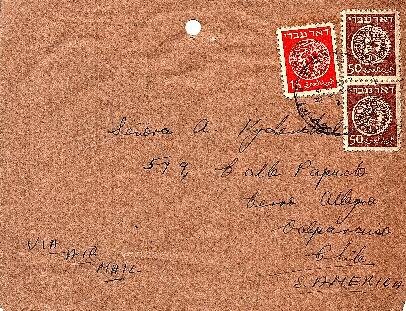 דאר עברי
דאר עברי
15
50
דאר עברי
50
Senora A.
579, Calle Papudo
Cerro Allegre
Valparaiso
Chile
S. AMERICA
VIA
AIR
MAIL